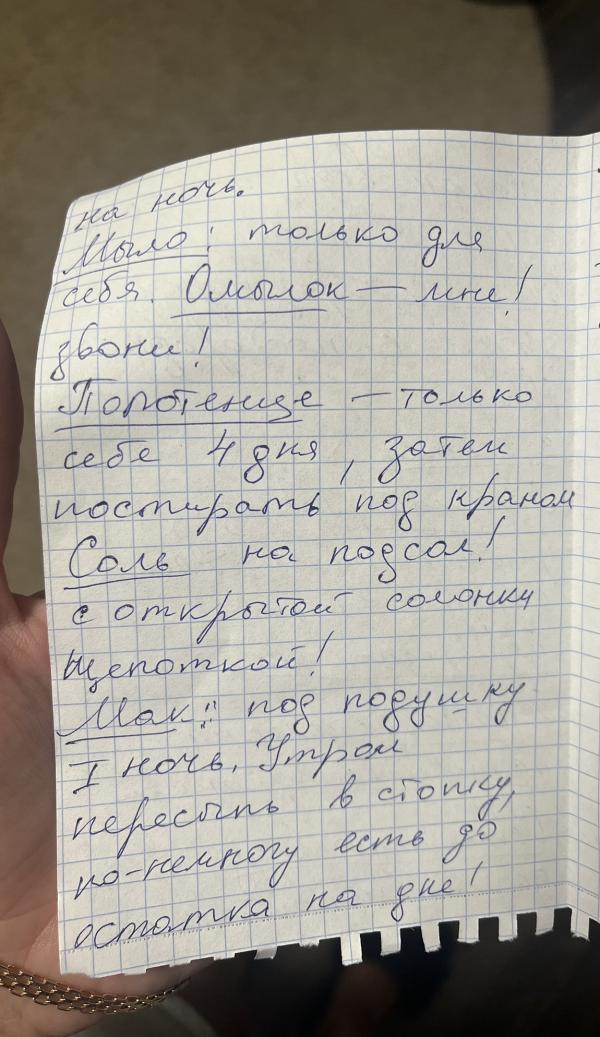 на ночь.
Мыло: только для
себя. Омылок — мне!
звони!
Полотенце — только
себе 4 дня, затем
постирать под краном
Соль на подсол!
с открытой солонки
щепоткой!
Мак: под подушку
I ночь. Утром
пересыпь в стопку,
по-немногу есть до
остатка на дне!